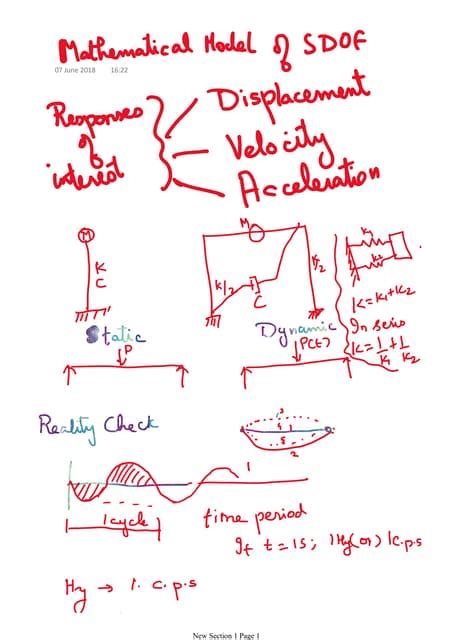 Mathematical Model of SDOF
07 June 2018 16:22
Responses of interest
Displacement
Velocity
Acceleration
M
K
C
M
K/2
C
K/2
K1
K2
K=K1+K2
In series
K=1/K1+1/K2
Static
P
Dynamic
P(t)
Reality Check
3
4 1
5
2
1
1 cycle
time period
If t=1s; 1Hz(or) 1c.p.s
Hz → 1. c.p.s
New Section 1 Page 1